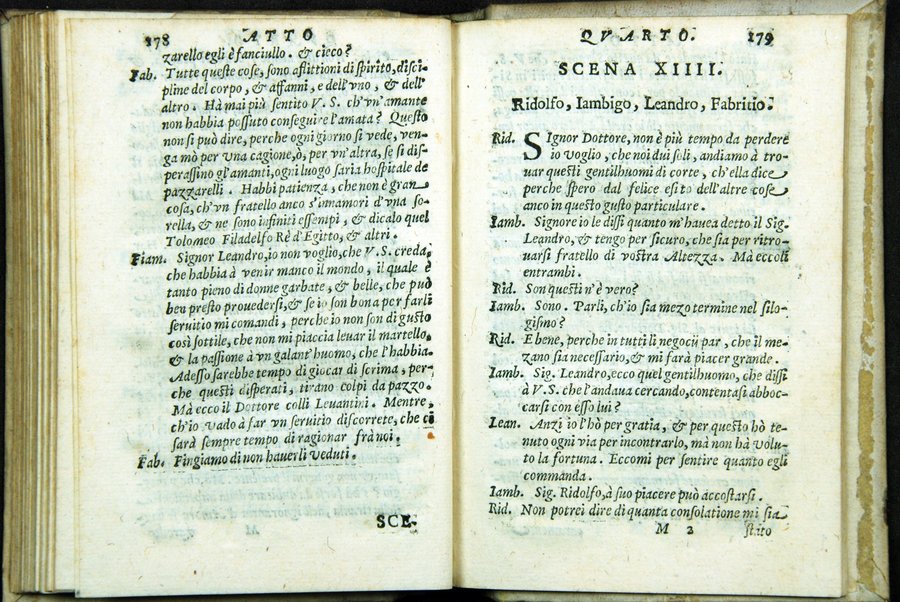 178 ATTO
zarello egli è fanciullo. & cieco?
Fab. Tutte queste cose, sono aflittioni di spirito, disci-
pline del corpo, & affanni, e dell'vno, & dell'
altro. Hà mai più sentito V. S. ch'vn'amante
non habbia possuto conseguire l'amata? Questo
non si può dire, perche ogni giorno si vede, ven-
ga mò per vna cagione, ò, per vn'altra, se si dis-
perassino gl'amanti, ogni luogo saria hospitale de
pazzarelli. Habbi patienza, che non è gran
cosa, ch'vn fratello anco s'innamori d'vna so-
rella, & ne sono infiniti essempi, & dicalo quel
Tolomeo Filadelfo Rè d'Egitto, & altri.
Fiam. Signor Leandro, io non voglio, che V. S. creda,
che habbia à venir manco il mondo, il quale è
tanto pieno di donne garbate, & belle, che può
ben presto prouedersi, & se io son bona per farli
seruitio mi comandi, perche io non son di gusto
così sottile, che non mi piaccia leuar il martello,
& la passione à vn galant'huomo, che l'habbia.
Adesso sarebbe tempo di giocar di scrima, per-
che questi disperati, tirano colpi da pazzo.
Mà ecco il Dottore colli Leuantini. Mentre,
ch'io vado à far vn seruitio discorrete, che ci
sarà sempre tempo di ragionar frà noi.
Fab. Fingiamo di non hauerli veduti.
SCE-
QVARTO. 179
SCENA XIIII.
Ridolfo, Iambigo, Leandro, Fabritio.
Rid. SIgnor Dottore, non è più tempo da perdere
io voglio, che noi dui soli, andiamo à tro-
uar questi gentilhuomi di corte, ch'ella dice
perche spero dal felice esito dell'altre cose
anco in questo gusto particulare.
Iamb. Signore io le dissi quanto m'hauea detto il Sig.
Leandro, & tengo per sicuro, che sia per ritro-
uarsi fratello di vostra Altezza. Mà eccoli
entrambi.
Rid. Son questi n'è vero?
Iamb. Sono. Parli, ch'io sia mezo termine nel silo-
gismo?
Rid. E bene, perche in tutti li negocij par, che il me-
zano sia necessario, & mi farà piacer grande.
Iamb. Sig. Leandro, ecco quel gentilhuomo, che dissi
à V. S. che l'andaua cercando, contentasi abboc-
carsi con esso lui?
Lean. Anzi io l'hò per gratia, & per questo hò te-
nuto ogni via per incontrarlo, mà non hà volu-
to la fortuna. Eccomi per sentire quanto egli
commanda.
Iamb. Sig. Ridolfo, à suo piacere può accostarsi.
Rid. Non potrei dire di quanta consolatione mi sia
M 2 stato